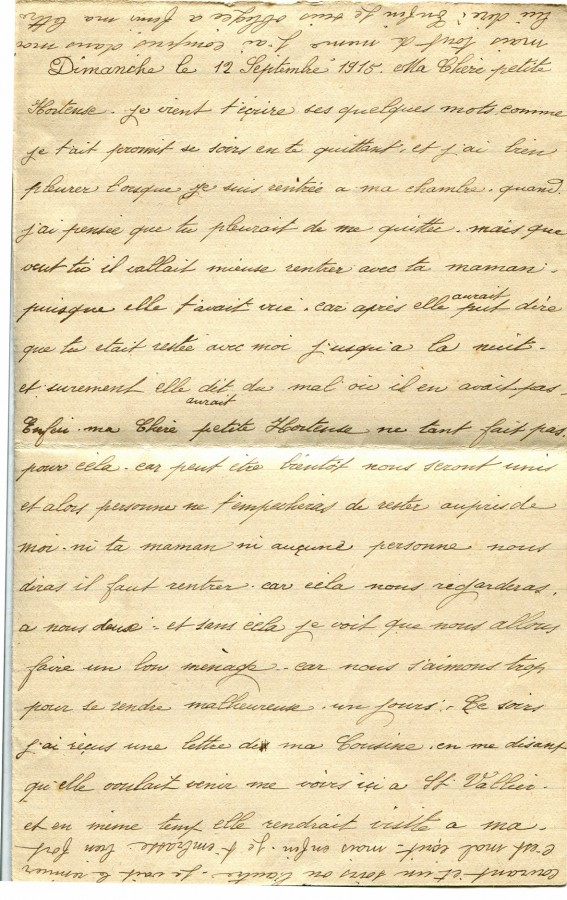 lui dire. Enfin je suis obligée a finir ma lettre
mais tout de meme j'ai compris dans moi
Dimanche le 12 Septembre 1915. Ma Chère petite
Hortense. je vient t'ecrire ses quelques mots comme
je t'ait promit se soirs en te quittant. et j'ai bien
pleurer lorsque je suis rentrée a ma chambre. quand
j'ai pensée que tu pleurait de me quittée. mais que
veut tu il vallait mieuse rentrer avec ta maman.
puisque elle t'avait vue. car après elle aurait put dire
que tu etait restée avec moi jusqu'a la nuit.
et surement elle aurait dit du mal où il en avait pas.
Enfin ma Chère petite Hortense ne tant fait pas.
pour cèla. car peut être bientôt nous seront unis
et alors personne ne t'empecheras de rester auprès de
moi. ni ta maman ni aucune personne nous
diras il faut rentrer. car cèla nous regarderas.
a nous deux. et sans cèla je voit que nous allons
faire un bon ménage. car nous s'aimons trop
pour se rendre malheureuse un jours. Ce soirs
j'ai reçus une lettre de ma Cousine. en me disant
qu'elle voulait venir me voirs ici a St Vallier.
et en même temp elle rendrait visite a ma.
c'est mal écrit. mais enfin. je t'embrasse bien fort
courant et un soirs ou l'autre. je vait terminer